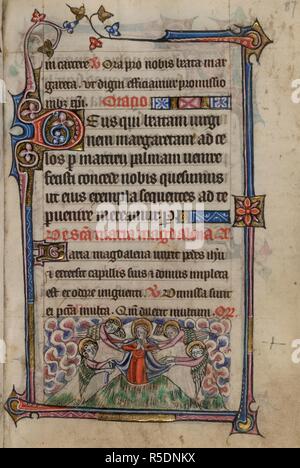 in carcere ℣ Ora pro nobis beata mar
gareta. Ut digni efficiamur promissio
nibz xpi. Oratio
Deus qui beatam virgi
nem margaretam ad ce
los per martirii palmam venire
fecisti concede nobis quesumus
ut eius exempla sequentes ad te
pervenire mereamur. P
De scā maria magdalena. A
Maria magdalena unxit pedes ihu
et extersit capillis suis et domus impleta
est ex odore unguenti. ℣ Dimissa sunt
ei pctā multa. Qm dilexit multum. Or.
87
alamy
Image ID: R5DNKX
www.alamy.com